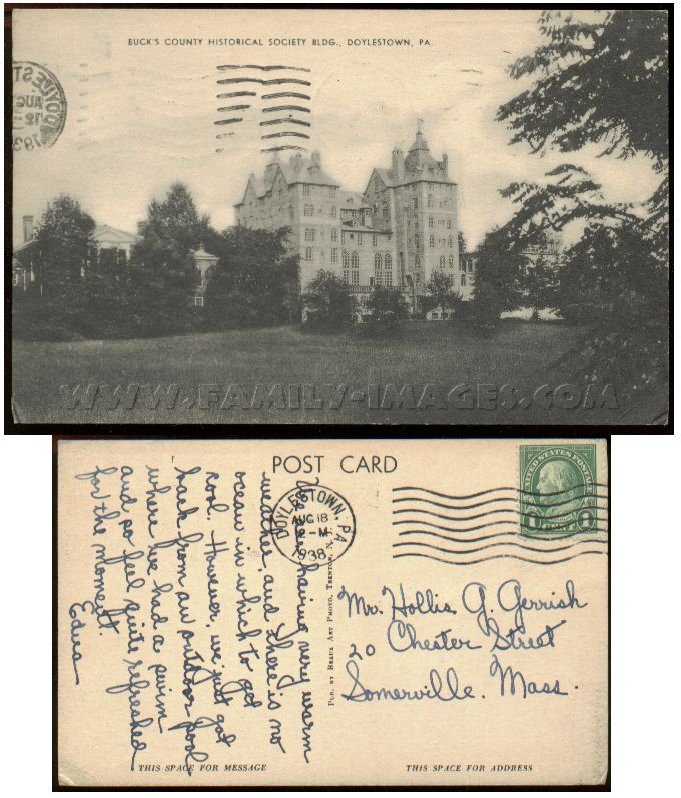 BUCK'S COUNTY HISTORICAL SOCIETY BLDG., DOYLESTOWN, PA.
WWW.FAMILY-IMAGES.COM
POST CARD
DOYLESTOWN, PA.
AUG 18
2-M
1938
UNITED STATES POSTAGE
1 CENT 1
We're having very warm
weather, and there is no
ocean in which to get
cool. However, we just got
back from an outdoor pool
where we had a swim
and so feel quite refreshed
for the moment.
Edna
PUB. BY BEAUX ART PHOTO, TRENTON, N. J.
Mr. Hollis G. Gerrish
20 Chester Street
Somerville. Mass.
THIS SPACE FOR MESSAGE
THIS SPACE FOR ADDRESS